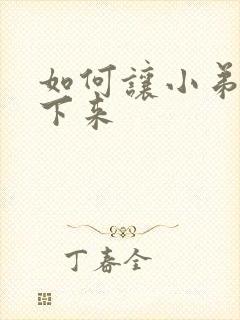 如何讓小弟
下来
丁春全